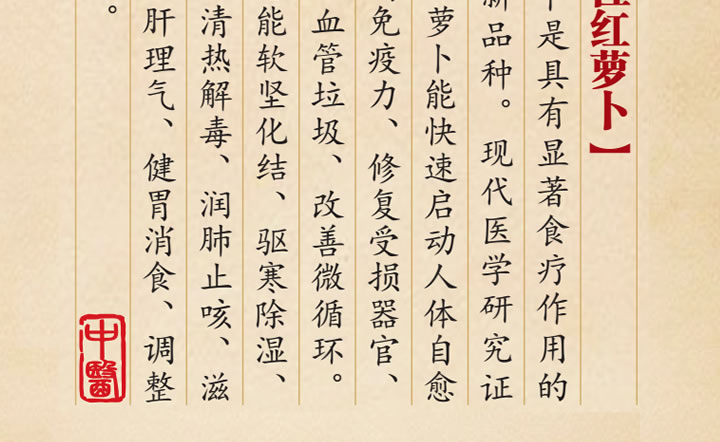 红萝卜】
是具有显著食疗作用的
新品种。现代医学研究证
萝卜能快速启动人体自愈
免疫力、修复受损器官、
血管垃圾、改善微循环。
能软坚化结、驱寒除湿、
清热解毒、润肺止咳、滋
肝理气、健胃消食、调整
。
中醫